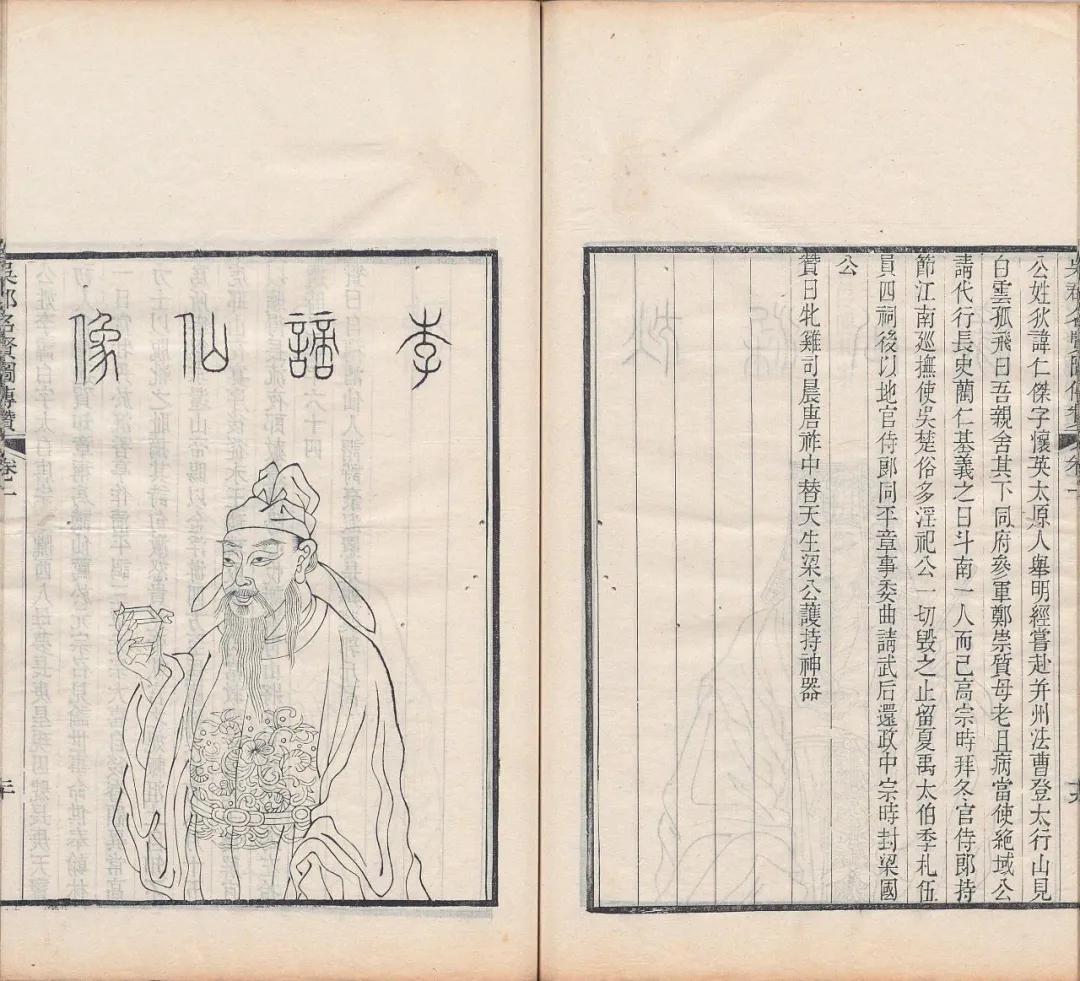 公姓狄諱仁傑字懷英太原人舉明經嘗赴并州法曹登太行山見
白雲孤飛曰吾親舍其下同府參軍鄭崇質母老且病當使絕域公
請代行長史藺仁基義之曰斗南一人而已高宗時拜冬官侍郎持
節江南巡撫使吳楚俗多淫祀公一切毀之止留夏禹太伯季札伍
員四祠後以地官侍郎同平章事委曲請武后還政中宗時封梁國
公
贊曰牝雞司晨唐祚中替天生梁公護持神器
李謫仙像
吳郡名賢圖傳贊 卷一